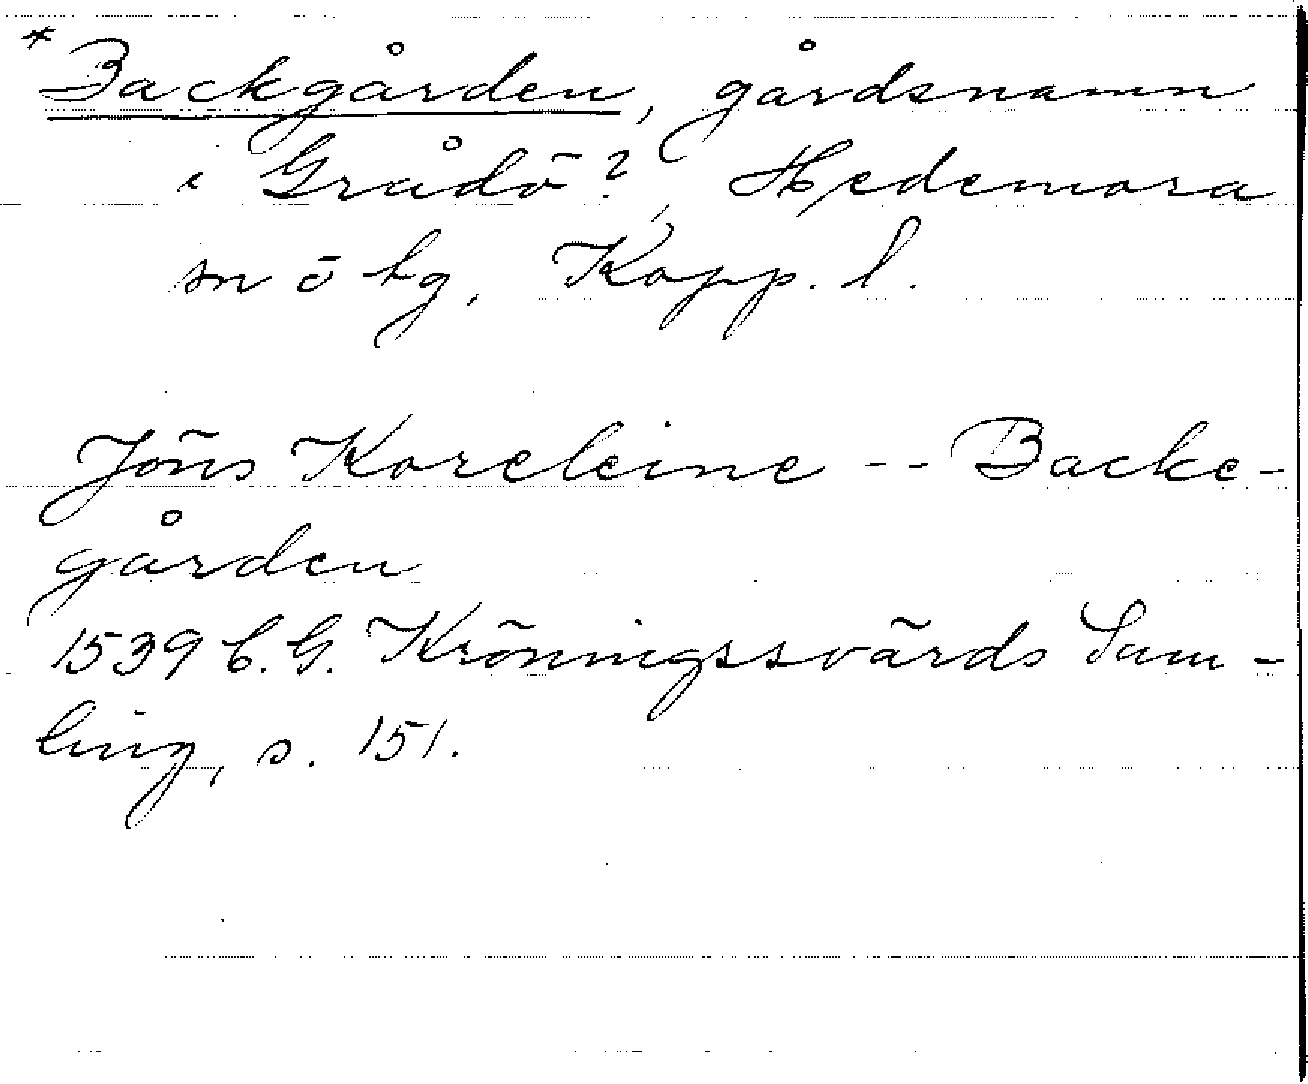 *Backgården, gårdsnamn
i Grådö?, Hedemora
sn o tg, Kopp. l.
Jöns Koreleine -- Backe-
gården
1539 C.G. Kröningssvärds Sam-
ling, s. 151.